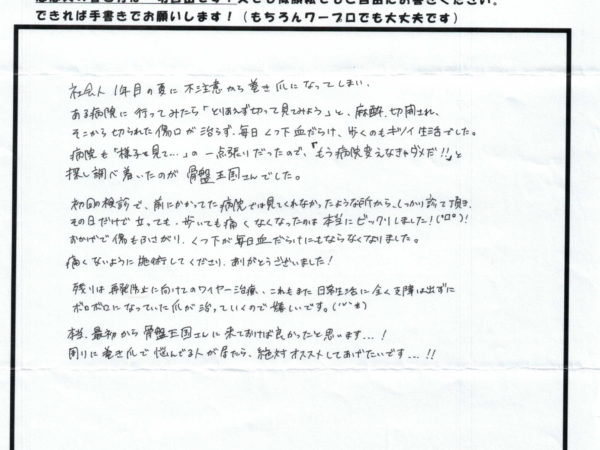 できれば手書きでお願いします！（もちろんワープロでも大丈夫です）
社会人1年目の夏に不注意から巻き爪になってしまい、
ある病院に行ってみたら「とりあえず切って見てみよう」と、麻酔、切開され、
そこから切られた傷口が治らず、毎日くつ下血だらけ、歩くのもギリギリ生活でした。
病院も「様子を見て…」の一点張りだったので、「もう病院変えなきゃダメだ!!」と
探し調べ着いたのが骨盤王国さんでした。
初回の検診で、前にかかってた病院では見てくれなかったような所から、しっかり診て頂き、
その日だけで立っても、歩いても痛くなくなったのは本当にビックリしました！(°ロ°)！
おかげで傷もふさがり、くつ下が毎日血だらけにもならなくなりました。
痛くないように施術してくださり、ありがとうございました！
残りは再発防止に向けてのワイヤー治療、これもまた日常生活に全く支障は出ずに
ボロボロになっていた爪が治っていくので嬉しいです。
本当、最初から骨盤王国さんに来ておけば良かったと思います…！
周りに巻き爪で悩んでる人が居たら、絶対オススメしてあげたいです…!!